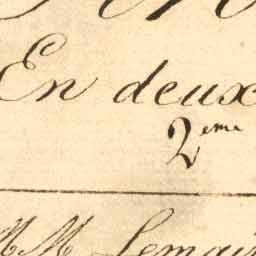 En deux
2eme
MM Lemair